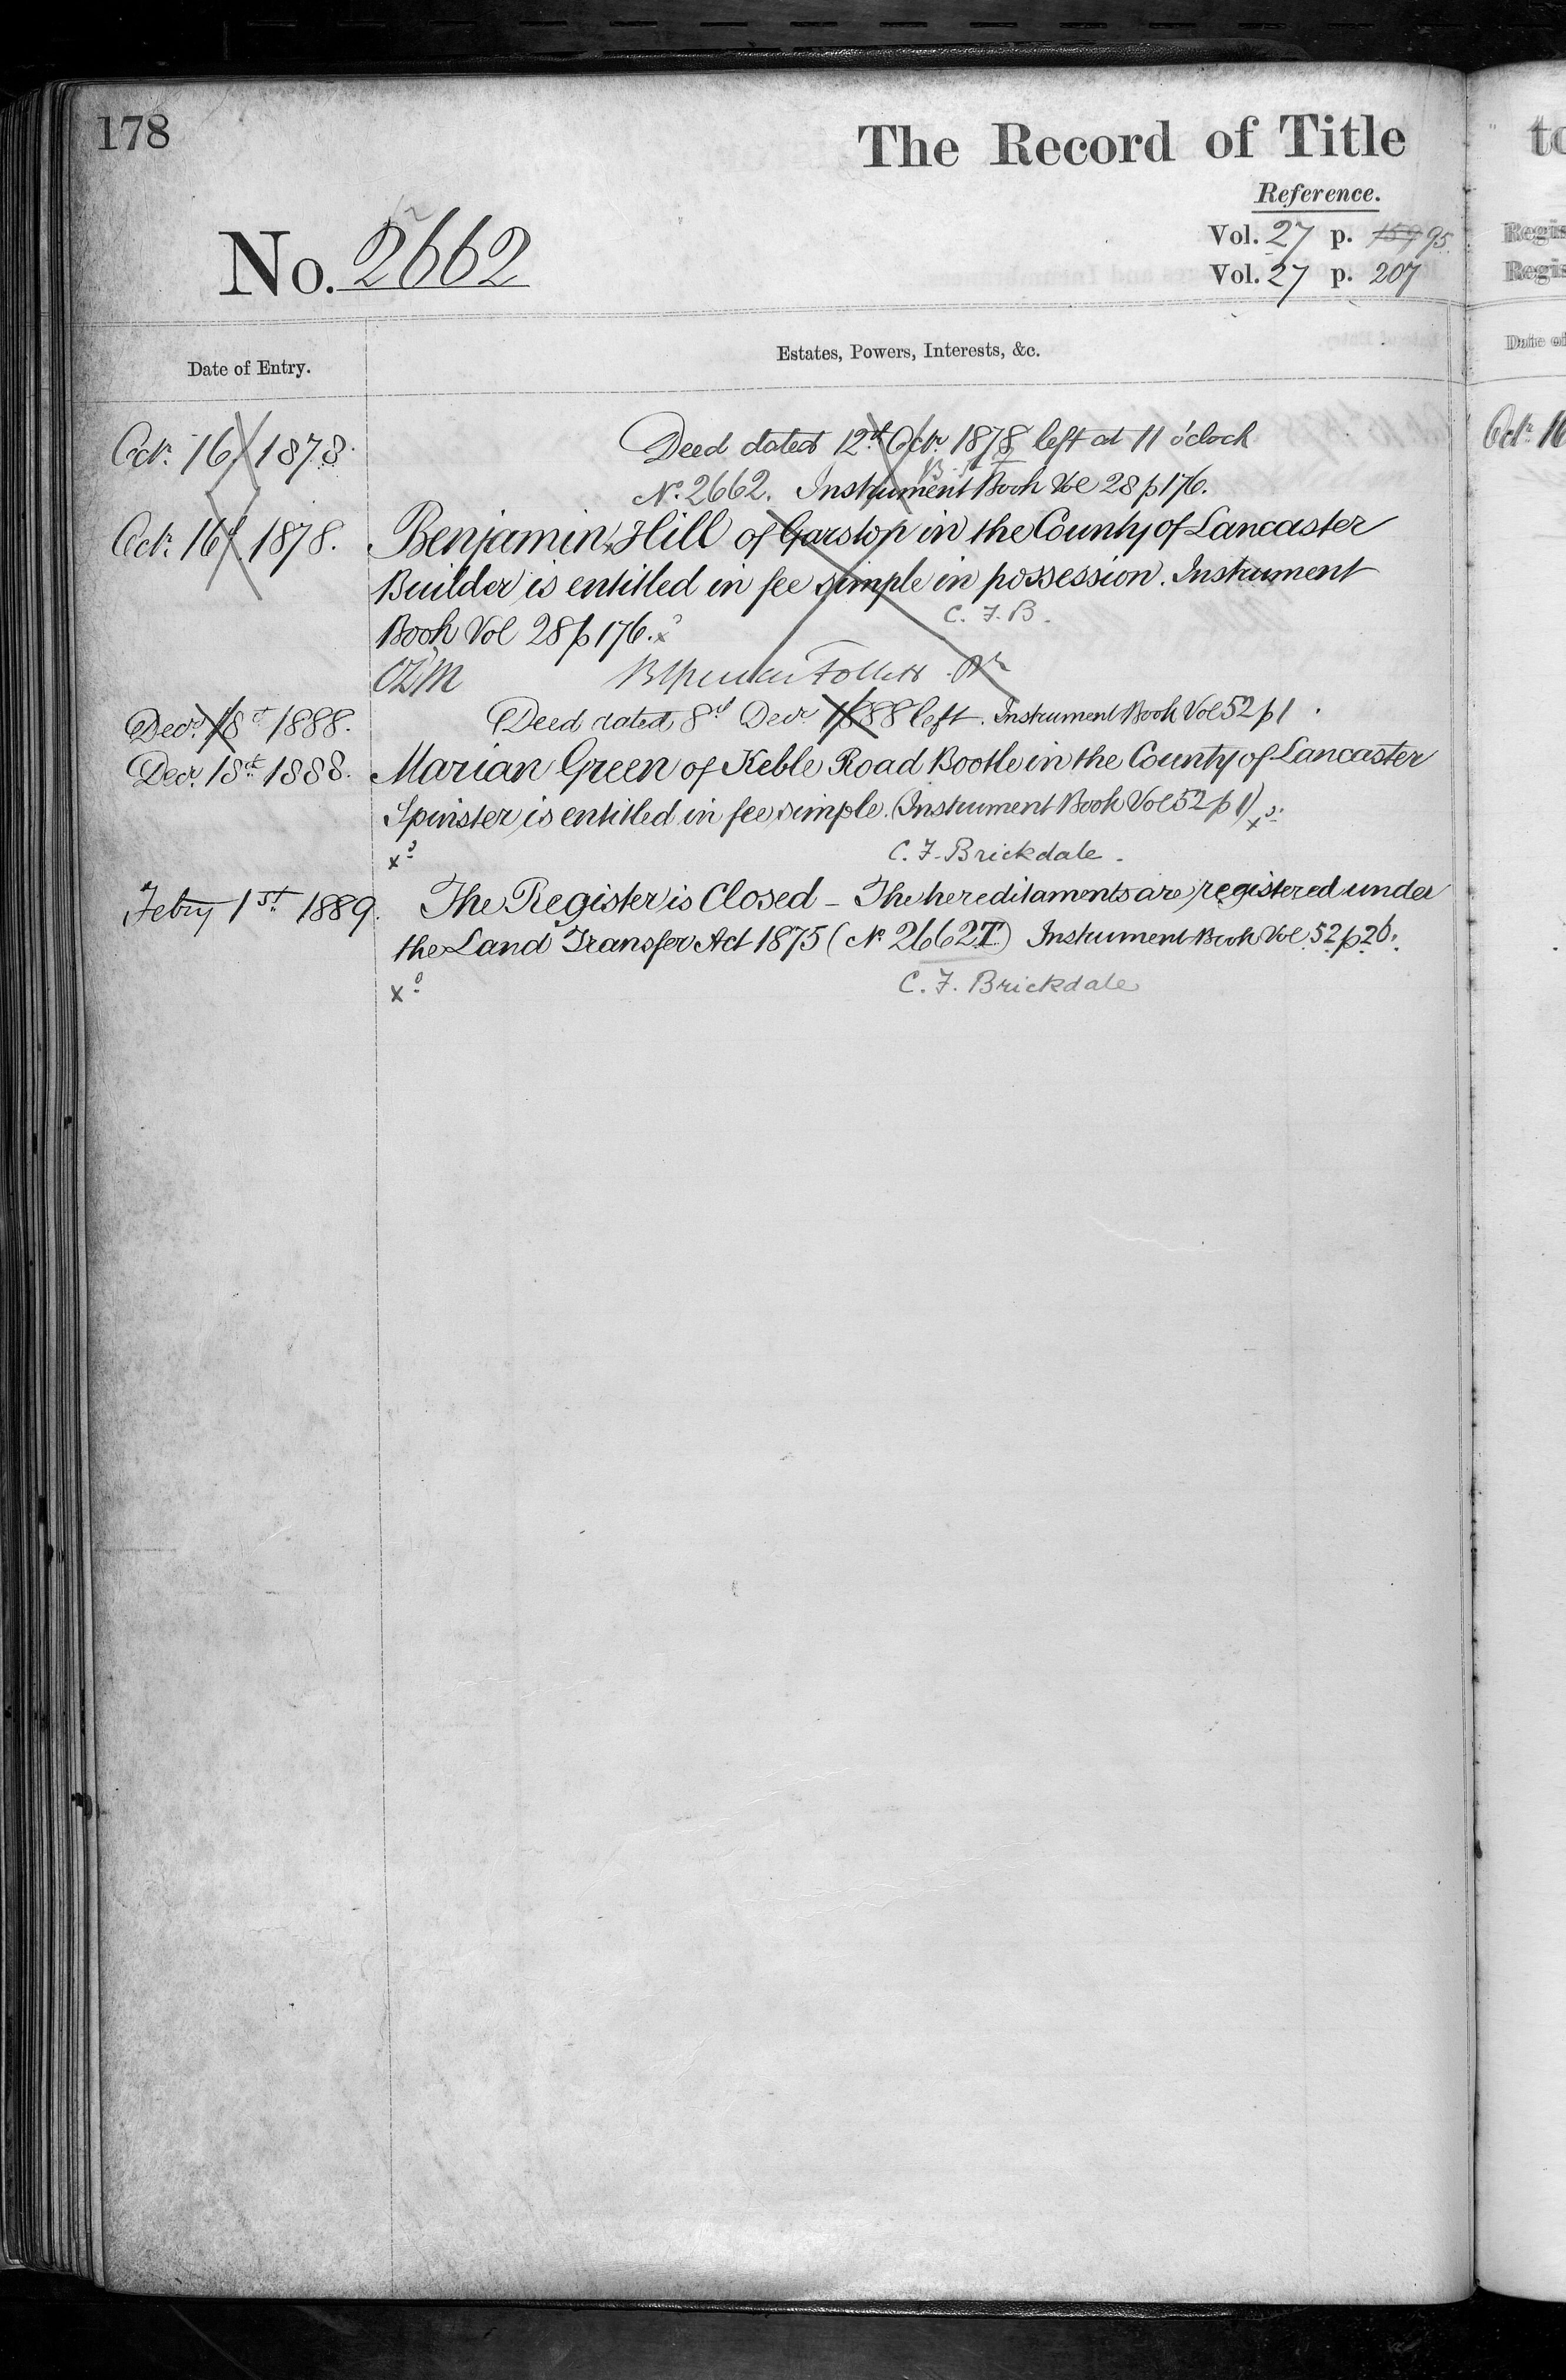 178
The Record of Title
Reference.
No. 2662
Vol. 27 p. 159 95
Vol. 27 p. 207
Date of Entry.
Estates, Powers, Interests, &c.
Octr. 16 1878.
Deed dated 12th Octr. 1878 left at 11 o'clock
No. 2662. Instrument Book Vol 28 p 176.
Octr. 16th 1878.
Benjamin Hill of Garston in the County of Lancaster
Builder is entitled in fee simple in possession. Instrument
C. F. B.
Book Vol 28 p 176. x
Follett
Decr. 18th 1888.
Deed dated 8th Decr 1888 left. Instrument Book Vol 52 p 1
Decr. 18th 1888.
Marian Green of Keble Road Bootle in the County of Lancaster
Spinster is entitled in fee simple. (Instrument Book Vol 52 p 1) x
x
C. F. Brickdale.
Febry 1st. 1889.
The Register is Closed – The hereditaments are registered under
the Land Transfer Act 1875 (No. 2662T) Instrument Book Vol. 52 p 26.
x
C. F. Brickdale
to
Regis
Regis
Date of
Octr. 16